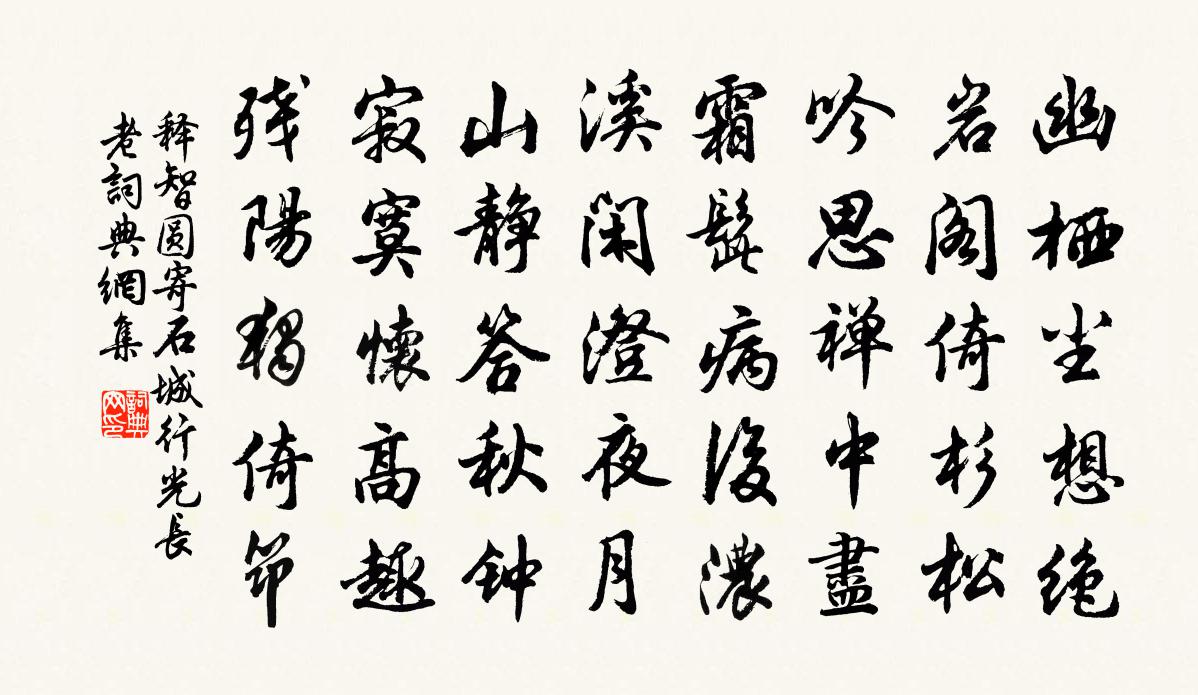 幽栖尘想绝
岩阁倚杉松
吟思禅中盡
霜髭病後濃
溪闲澄夜月
山静答秋钟
寂寞懷高趣
残陽独倚筇
释智圆寄石城行光長
老詞典網集
詞典
网印